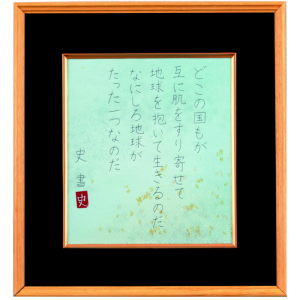 どこの国もが
互に肌をすり寄せて
地球を抱いて生きるのだ
なにしろ地球が
たった一つなのだ
史書
史